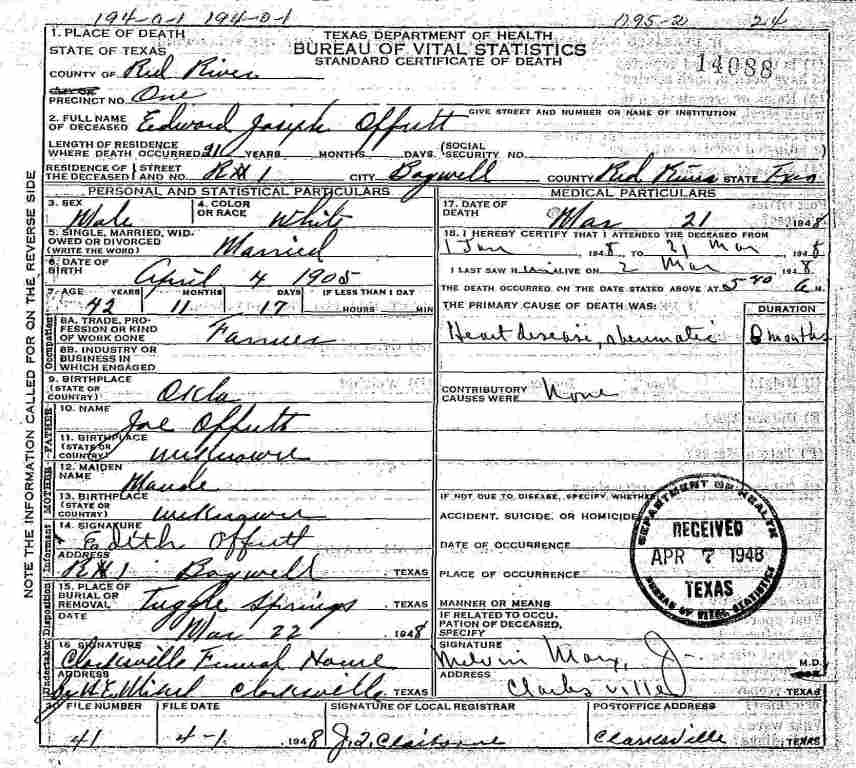 194-0-1 194-0-1 095-2 24
1. PLACE OF DEATH
STATE OF TEXAS
TEXAS DEPARTMENT OF HEALTH
BUREAU OF VITAL STATISTICS
STANDARD CERTIFICATE OF DEATH
14088
COUNTY OF Red River
PRECINCT NO. One
GIVE STREET AND NUMBER OR NAME OF INSTITUTION
2. FULL NAME OF DECEASED Edward Joseph Offutt
LENGTH OF RESIDENCE WHERE DEATH OCCURRED 21 YEARS MONTHS DAYS (SOCIAL SECURITY NO.
RESIDENCE OF THE DECEASED STREET AND NO. R#1 CITY Bagwell COUNTY Red River STATE Texas
PERSONAL AND STATISTICAL PARTICULARS
3. SEX Male
4. COLOR OR RACE White
5. SINGLE, MARRIED, WIDOWED OR DIVORCED (WRITE THE WORD) Married
6. DATE OF BIRTH April 4 1905
7. AGE YEARS MONTHS DAYS IF LESS THAN 1 DAY
42 11 17 HOURS MIN
Occupation
8A. TRADE, PROFESSION OR KIND OF WORK DONE Farmer
8B. INDUSTRY OR BUSINESS IN WHICH ENGAGED
9. BIRTHPLACE (STATE OR COUNTRY) Okla
FATHER
10. NAME Joe Offutt
11. BIRTHPLACE (STATE OR COUNTRY) unknown
MOTHER
12. MAIDEN NAME Maude
13. BIRTHPLACE (STATE OR COUNTRY) unknown
Informant
14. SIGNATURE Edith Offutt
ADDRESS R#1 Bagwell, TEXAS
Disposition
15. PLACE OF BURIAL OR REMOVAL Tuggle Springs, TEXAS
DATE Mar 22 1948
Undertaker
16. SIGNATURE Clarksville Funeral Home
ADDRESS by Clarksville, TEXAS
MEDICAL PARTICULARS
17. DATE OF DEATH Mar 21 1948
18. I HEREBY CERTIFY THAT I ATTENDED THE DECEASED FROM
1 Jan, 1948, TO 21 Mar, 1948
I LAST SAW H im ALIVE ON 2 Mar 1948
THE DEATH OCCURRED ON THE DATE STATED ABOVE AT 5 40 A M.
THE PRIMARY CAUSE OF DEATH WAS: DURATION
Heart disease, rheumatic months
CONTRIBUTORY CAUSES WERE None
IF NOT DUE TO DISEASE, SPECIFY WHETHER
ACCIDENT, SUICIDE, OR HOMICIDE
DATE OF OCCURRENCE
PLACE OF OCCURRENCE
MANNER OR MEANS
IF RELATED TO OCCUPATION OF DECEASED, SPECIFY
DEPARTMENT OF HEALTH
RECEIVED
APR 7 1948
TEXAS
BUREAU OF VITAL STATISTICS
SIGNATURE Melvin Marx, Jr. M.D.
ADDRESS Clarksville TEXAS
20. FILE NUMBER FILE DATE SIGNATURE OF LOCAL REGISTRAR POSTOFFICE ADDRESS
41 4-1 1948 J.Q. Claiborne Clarksville, TEXAS
NOTE THE INFORMATION CALLED FOR ON THE REVERSE SIDE